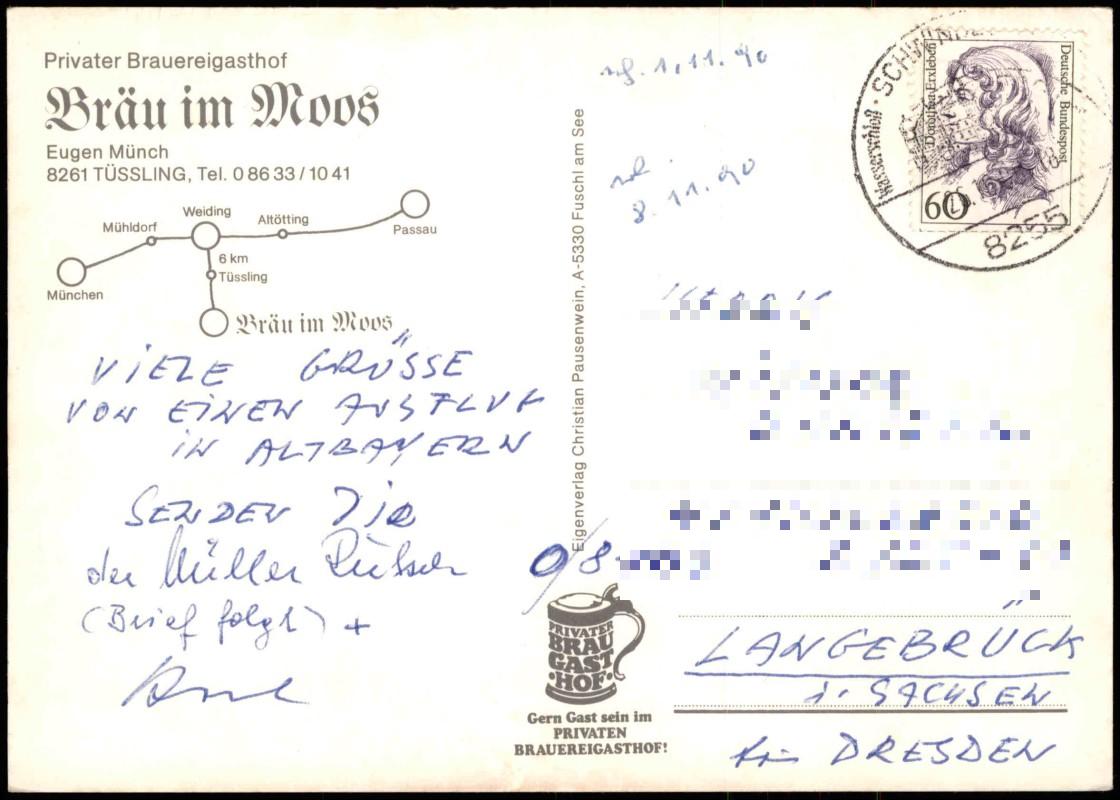 Privater Brauereigasthof
Bräu im Moos
Eugen Münch
8261 TÜSSLING, Tel. 0 86 33 / 10 41
Weiding
Mühldorf
Altötting
Passau
6 km
Tüssling
München
Bräu im Moos
VIELE GRÜSSE
VON EINEM AUSFLUG
IN ALTBAYERN
SENDEN DIR
der Müller
(Brief folgt) +
Eigenverlag Christian Pausenwein, A-5330 Fuschl am See
1.11.90
8.11.90
SCHWIND
8255
Deutsche Bundespost
Dorothea Erxleben
60
O/8
LANGEBRÜCK
i. SACHSEN
bei DRESDEN
PRIVATER
BRAU
GAST
·HOF·
Gern Gast sein im
PRIVATEN
BRAUEREIGASTHOF!